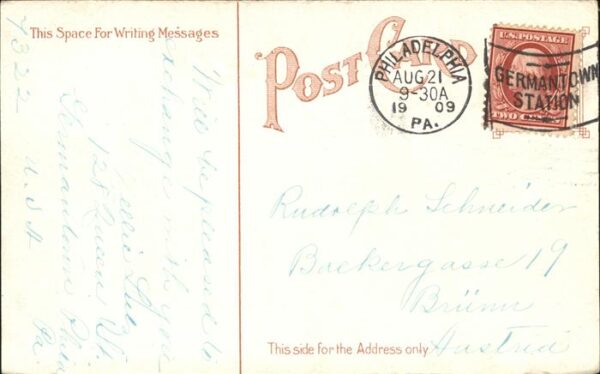 This Space For Writing Messages
POST CARD
PHILADELPHIA
AUG 21
9-30A
19 09
PA.
GERMANTOWN
STATION
U.S. POSTAGE
TWO CENTS
7322
Will be pleased to
exchange with you
128 Queen St.
Germantown Phila
Pa.
U.S.A
Rudolph Schneider
Backergasse 19
Brünn
Austria
This side for the Address only